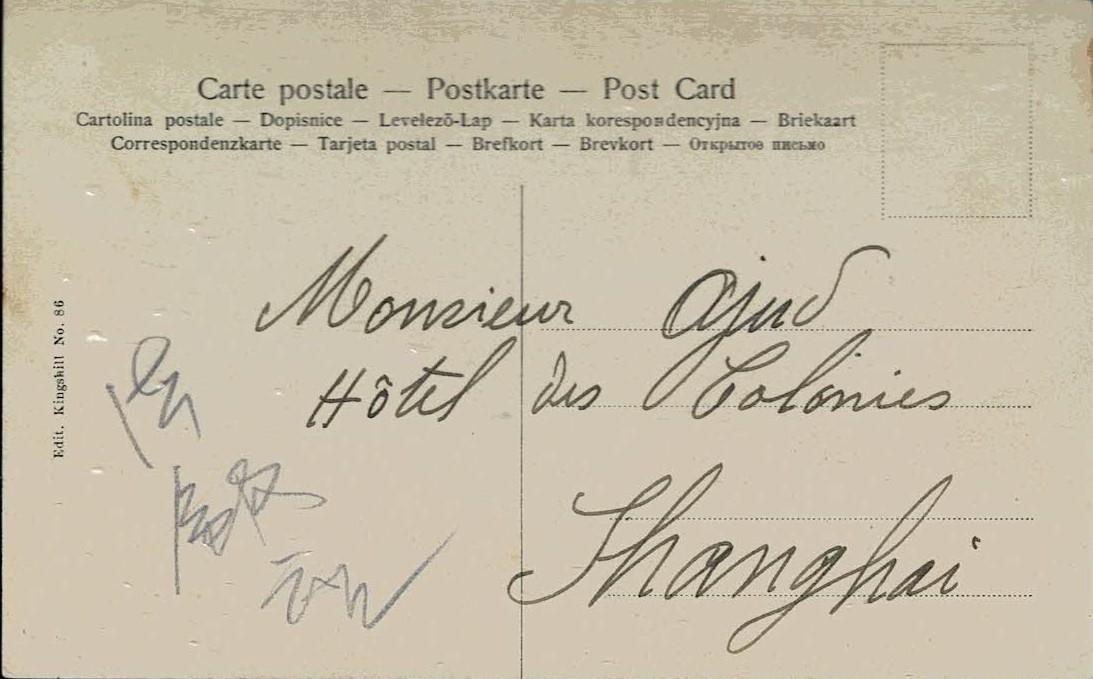 Carte postale — Postkarte — Post Card
Cartolina postale — Dopisnice — Levelező-Lap — Karta korespondencyjna — Briekaart
Correspondenzkarte — Tarjeta postal — Brefkort — Brevkort — Открытое письмо
Edit. Kingshill No. 86
Monsieur Ajud
Hôtel des Colonies
Shanghai